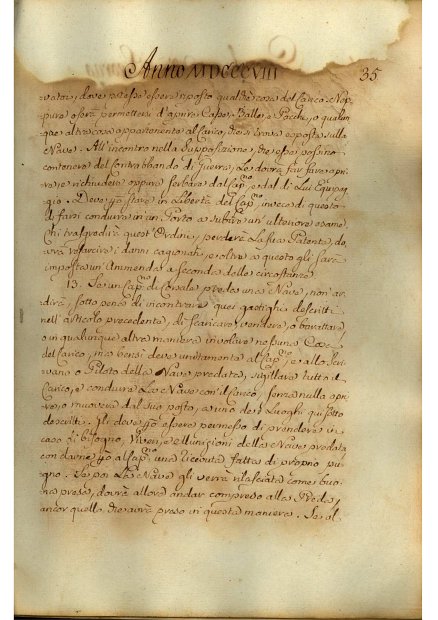 Anno MDCCCVIII 35
vator, dove potesse essere riposto qualche cosa del carico. Nep-
pure oserà permettersi d'aprire Casse, Balle, e Pacchi, o qualun-
que altra cosa appartenente al carico, che si trova esposta sulla
Nave. All'incontro nella supposizione, che essi possino
contenere del contrabbando di guerra, Le dovrà far fare apri-
re, e richiudere oppure serbare dal Capno e dal di Lui Equipag-
gio. Deve però stare in Libertà del Capno invece di questo
di farsi condurre in un Porto a subire un'ulteriore esame.
Chi trasgredirà quest'Ordini, perderà La sua Patente, do-
vrà rifarcire i danni cagionati, e oltre a questo gli sarà
imposta un'Ammenda a seconda delle circostanze.
13. Se un Capno di Corsale preda una Nave, non ar-
dirà, sotto pena di incontrare quei gastighi descritti
nell'Articolo precedente, di scaricare, vendere, o barattare,
o in qualunque altra maniera involare nessuna Cosa
del carico, ma bensì deve unitamente al Capno, e allo Scri-
vano o Piloto della Nave predata, sigillare tutto il
Carico, e condurre La Nave con il carico, senza nulla apri-
re, o muovere dal suo posto, a uno dei Luoghi qui sotto
descritti. Gli deve però essere permesso di prendere in
caso di bisogno, Viveri, e Munizioni della Nave predata
con darne però al Capno una ricevuta fatta di proprio pu-
gno. Se poi La Nave gli verrà rilasciata come buo-
na presa, dovrà allora andar compreso alla Preda,
ancor quello, che avrà preso in questa maniera. Se al